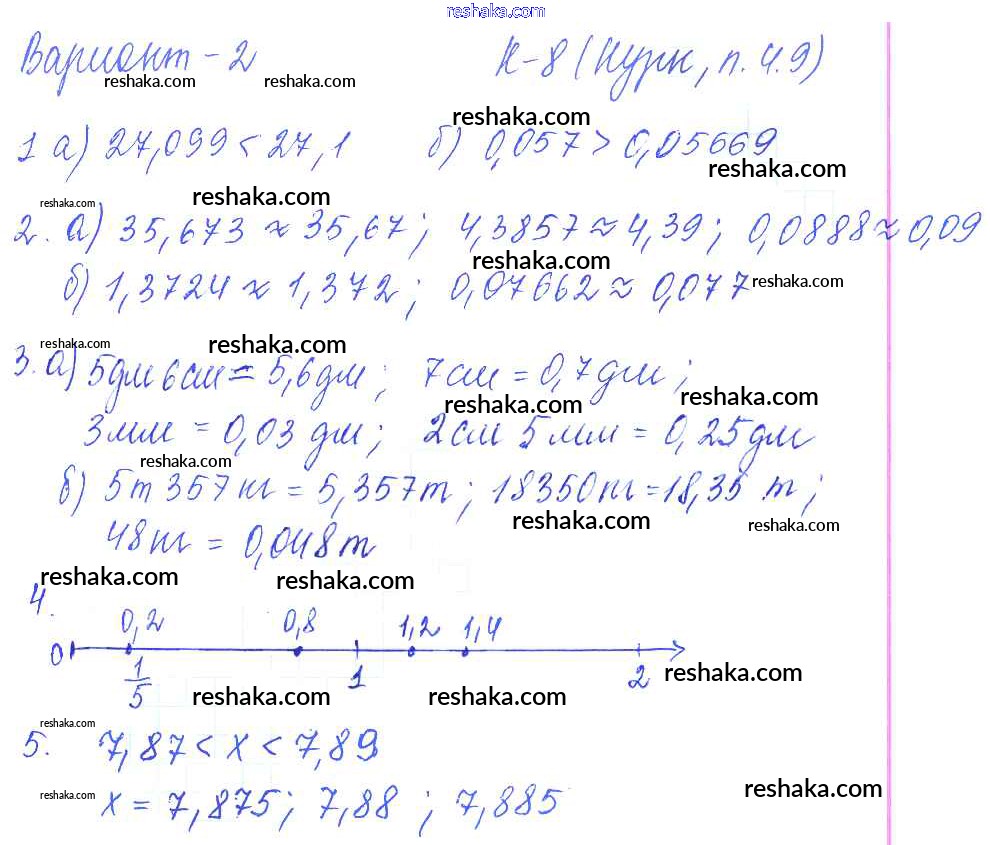 reshaka.com
Вариант-2 К-8 (Нурк, п. 4.9)
reshaka.com reshaka.com reshaka.com
1 а) 27,099 < 27,1 б) 0,057 > 0,05669
reshaka.com reshaka.com reshaka.com
2. а) 35,673 ≈ 35,67; 4,3857 ≈ 4,39; 0,0888 ≈ 0,09
reshaka.com
б) 1,3724 ≈ 1,372; 0,07662 ≈ 0,077
reshaka.com
reshaka.com reshaka.com
3. а) 5дм 6см = 5,6дм; 7см = 0,7дм;
reshaka.com reshaka.com
3мм = 0,03 дм; 2см 5мм = 0,25дм
reshaka.com
б) 5т 357кг = 5,357т; 18350кг = 18,35 т;
reshaka.com reshaka.com
48кг = 0,048т
reshaka.com reshaka.com
4.
0,2 0,8 1,2 1,4
0 1/5 1 2
reshaka.com reshaka.com reshaka.com
reshaka.com
5. 7,87 < x < 7,89
reshaka.com reshaka.com
x = 7,875; 7,88 ; 7,885